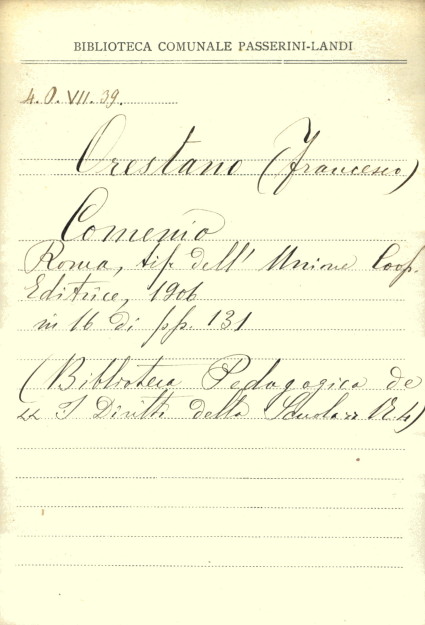 BIBLIOTECA COMUNALE PASSERINI-LANDI
4.O.VII.39.
Orestano (Francesco)
Comenio
Roma, tip. dell' Unione Coop.
Editrice, 1906
in 16 di pp. 131
(Biblioteca Pedagogica de
« I Diritti della Scuola » N 4)